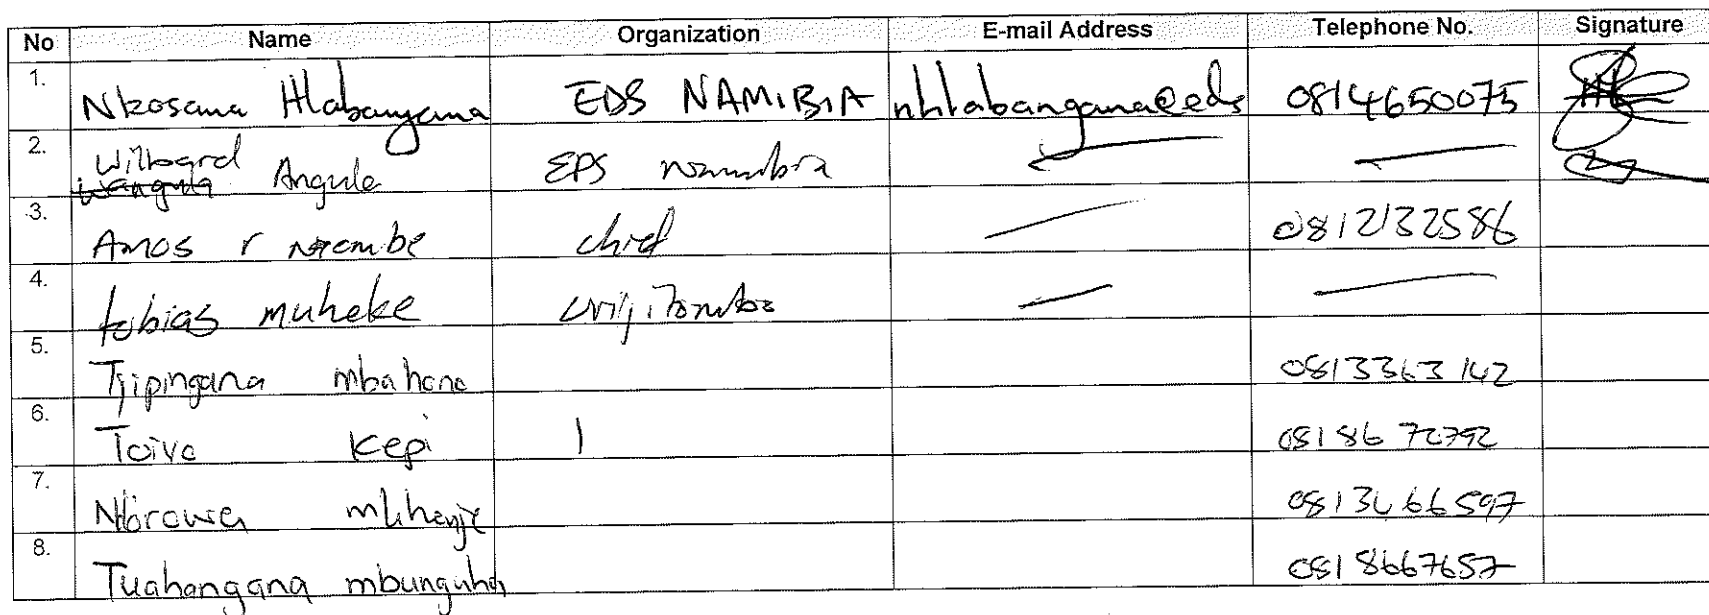 No Name Organization E-mail Address Telephone No. Signature
1. Nkosana Hlabangana EDS NAMIBIA nhlabangana@eds 0814650075
2. Wilbard Angula EDS namibia
3. Amos r chief 0812132586
4. tobias muheke
5. Tjipingana mbahono 0813363142
6. Toivo Kepi 0818672792
7. 0813466597
8. Tuahangana mbunguha 0818667657